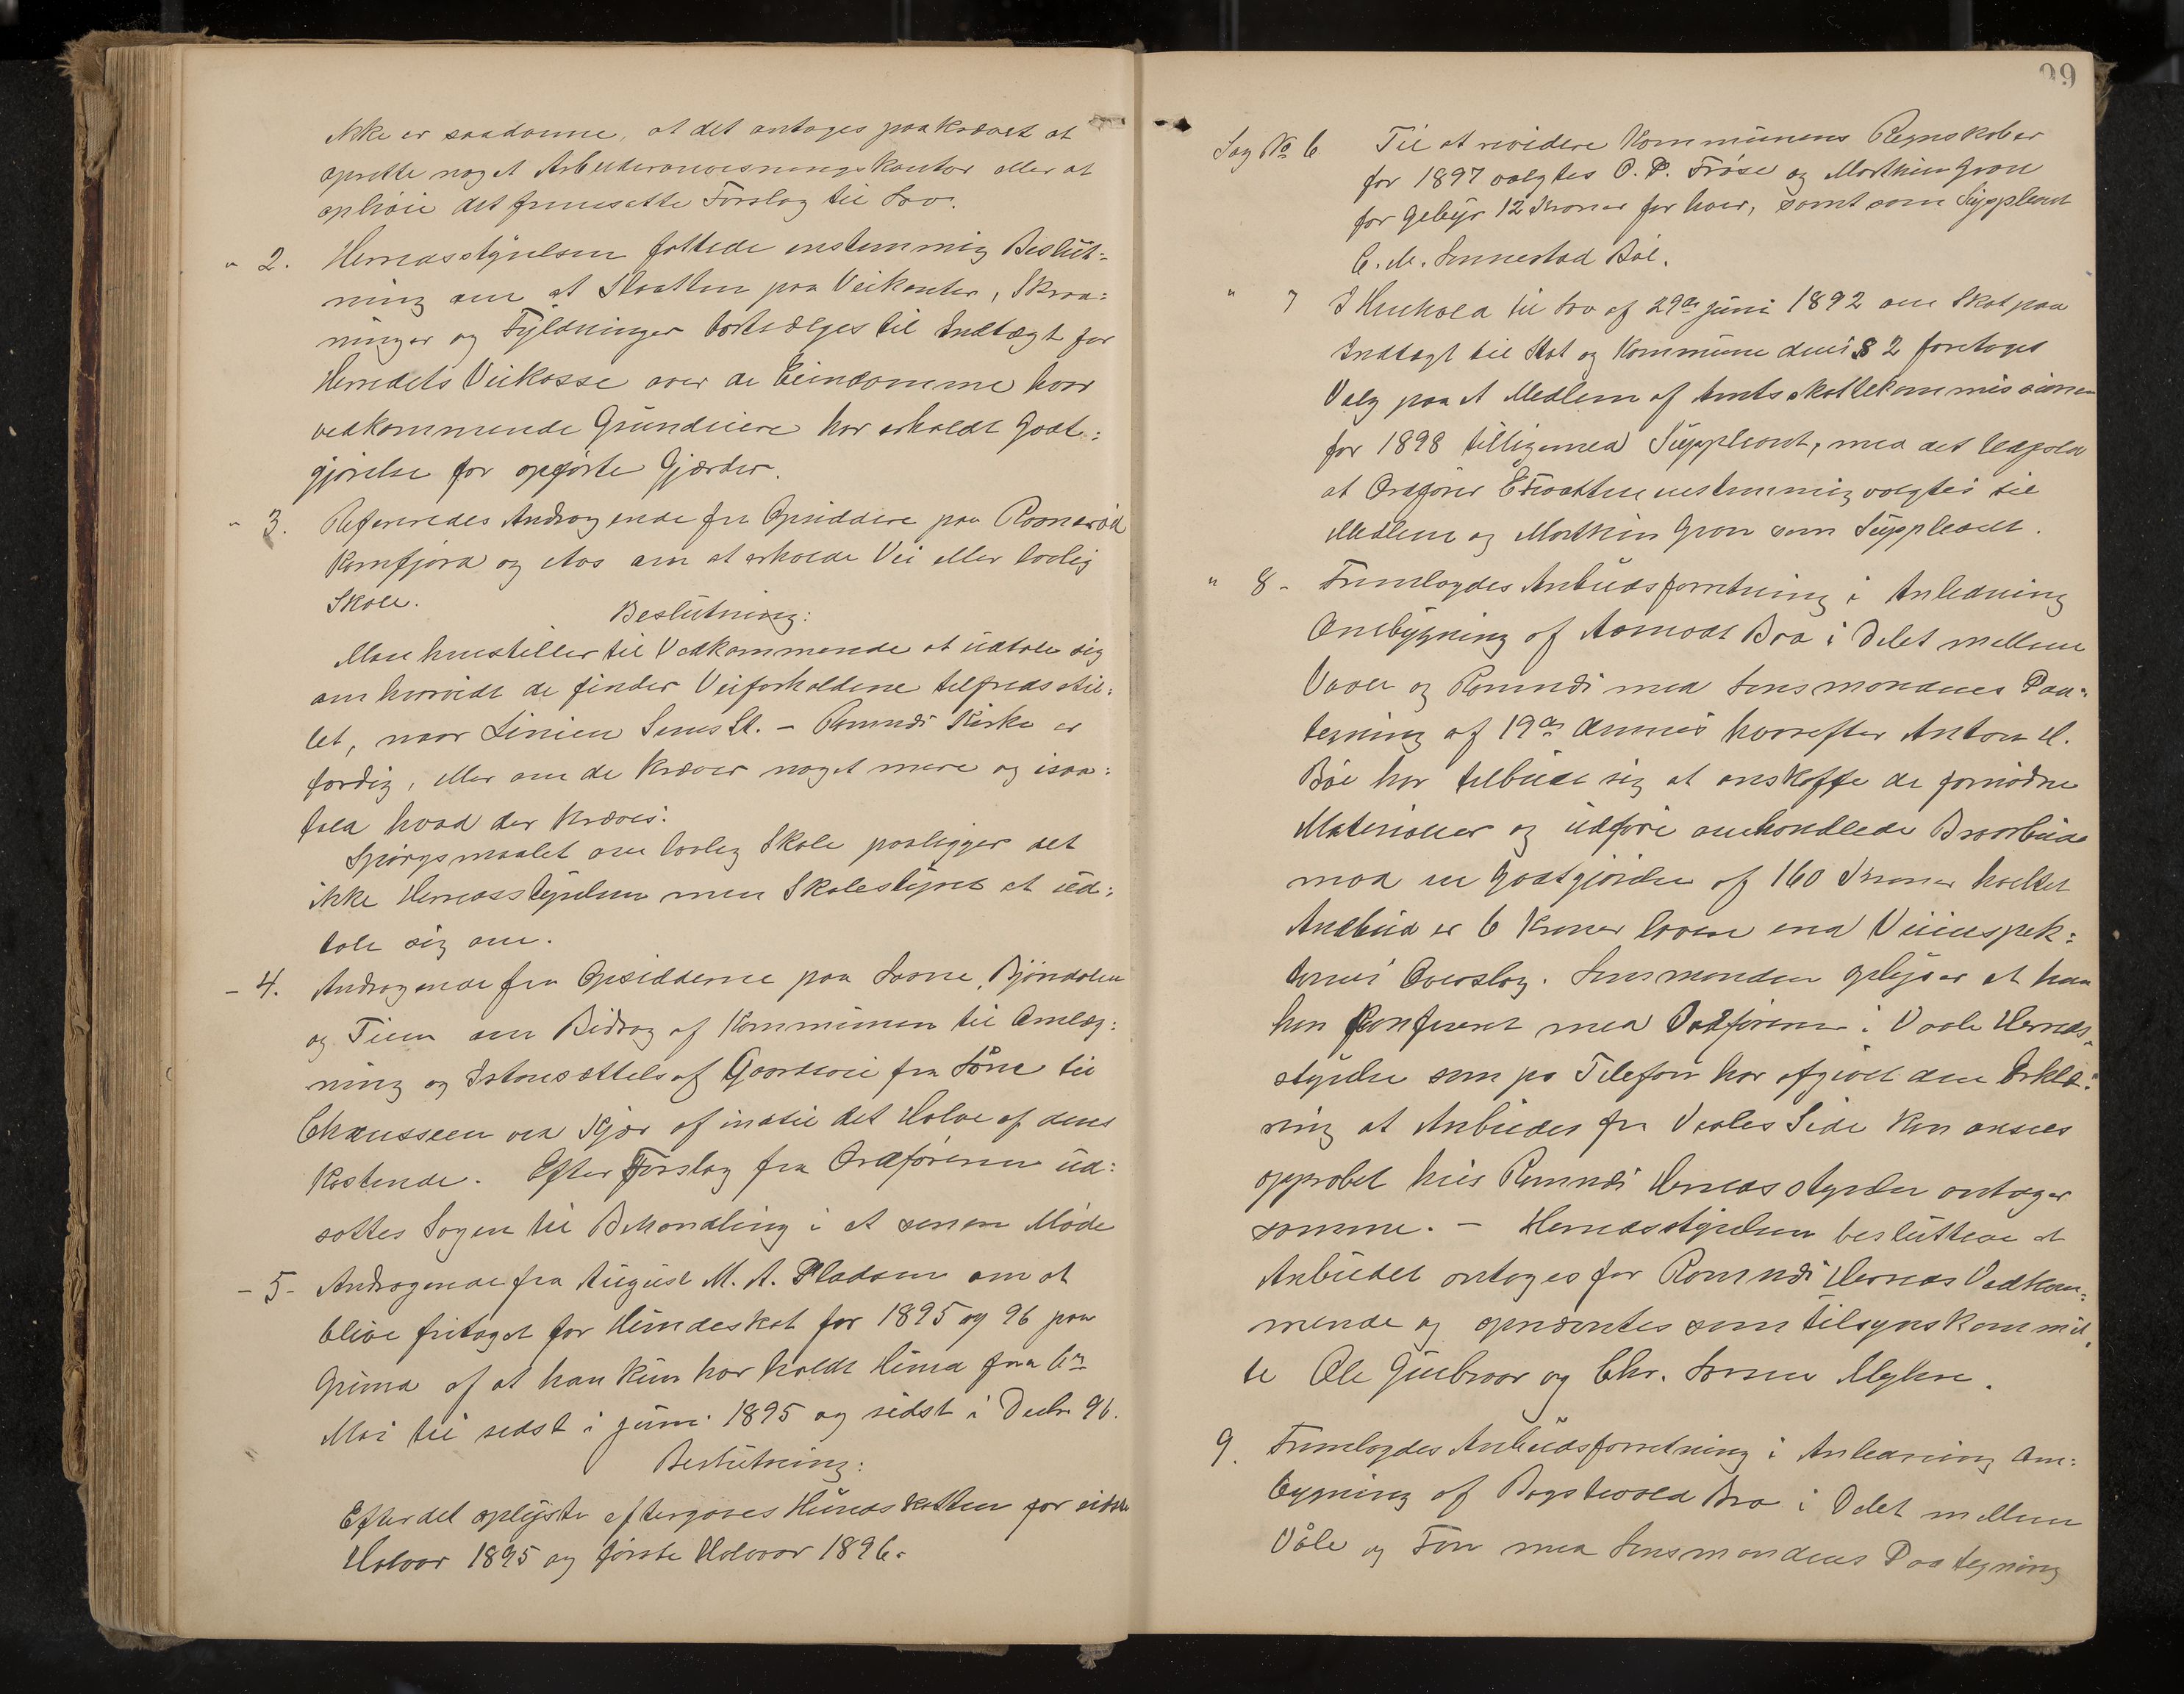 ikke er saadanne, at det antages paakrævet at
oprette noget Arbeideranvisningskontor eller at
ophøie det fremsatte Forslag til Lov.
" 2. Herredsstyrelsen fattede enstemmig Beslut=
ning om at Slaatten paa Veikanter, Skraa=
ninger og Fyldninger bortsælges til Indtægt for
Herredets Veikasse over de Eiendomme hvor
vedkommende Grundeiere har erholdt Godt=
gjørelse for opførte Gjærder.
" 3. Refereredes Andragende fra Opsiddere paa Raanerød
Kornfjord og Aas om at erholde Vei eller lovlig
Skole.
Beslutning:
Man henstiller til Vedkommende at udtale sig
om hvorvidt de finder Veiforholdene tilfredsstil=
let, naar Linien Sems St. - Ramnæs Kirke er
færdig, eller om de kræver noget mere og isaa=
fald hvad der kræves.
Spørgsmaalet om lovlig Skole paaligger det
ikke Herredsstyrelsen men Skolestyret at ud=
tale sig om.
- 4. Andragende fra Opsidderne paa Lorne, Bjøndalen
og Tiem om Bidrag af Kommunen til Omlæg=
ning og Istandsættelse af Gaardsvei fra Lörne til
Chausseen ved Kjær af indtil det Halve af dens
Kostende. Efter Forslag fra Ordføreren ud=
sattes Sagen til Behandling i et senere Møde
- 5 - Andragende fra August M. A. Pladsen om at
blive fritaget for Hundeskat for 1895 og 96 paa
Grund af at han kun har holdt Hund fra 1ste
Mai til sidst i Juni 1895 og sidst i Decbr 96.
Beslutning:
Efter det oplyste eftergives Hundeskatten for sidste
Halvaar 1895 og første Halvaar 1896.
99
Sag No 6. Til at revidere Kommunens Regnskaber
for 1897 valgtes O. P. Frøse og Marthin Gran
for Gebyr 12 Kroner for hver, samt som Supleant
C. M. Linnestad Bøe.
" 7 I Henhold til Lov af 29de Juni 1892 om Skat paa
Indtægt til Stat og Kommune dens § 2 foretoges
Valg paa et Medlem af Amtsskattekommissionen
for 1898 tilligemed Suppleant, med det Udfald
at Ordfører E Hvatten enstemmig valgtes til
Medlem og Marthin Gran som Suppleant.
" 8 - Fremlagdes Anbudsforretning i Anledning
Ombygning af Aamodt Bro i Delet mellem
Vaale og Ramnæs med Lensmandens Paa=
tegning af 19de dennes hvorefter Anton H.
Bøe har tilbudt sig at anskaffe de fornødne
Materialier og udføre omhandlede Broarbeide
mod en Godtgjørelse af 160 Kroner hvilket
Andbud er 6 Kroner lavere end Veiinspek=
tørens Overslag. Lensmanden oplyser at han
har konfereret med Ordføreren i Vaale Herreds=
styrelse som pr Telefon har afgivet den Erklæ=
ring at Anbudet fra Vaales Side kan ansees
approbet hvis Ramnæs Herredsstyrelse antager
samme. - Herredsstyrelsen besluttede at
Anbudet antages for Ramnæs Herreds Vedkom=
mende og opnævntes som tilsynskommit=
te Ole Gulbraar og Chr. Larsen Myhre.
9. Fremlagdes Anbudsforretning i Anledning Om=
bygning af Bogstvold Bro i Delet mellem
Våle og Fon med Lensmandens Paategning